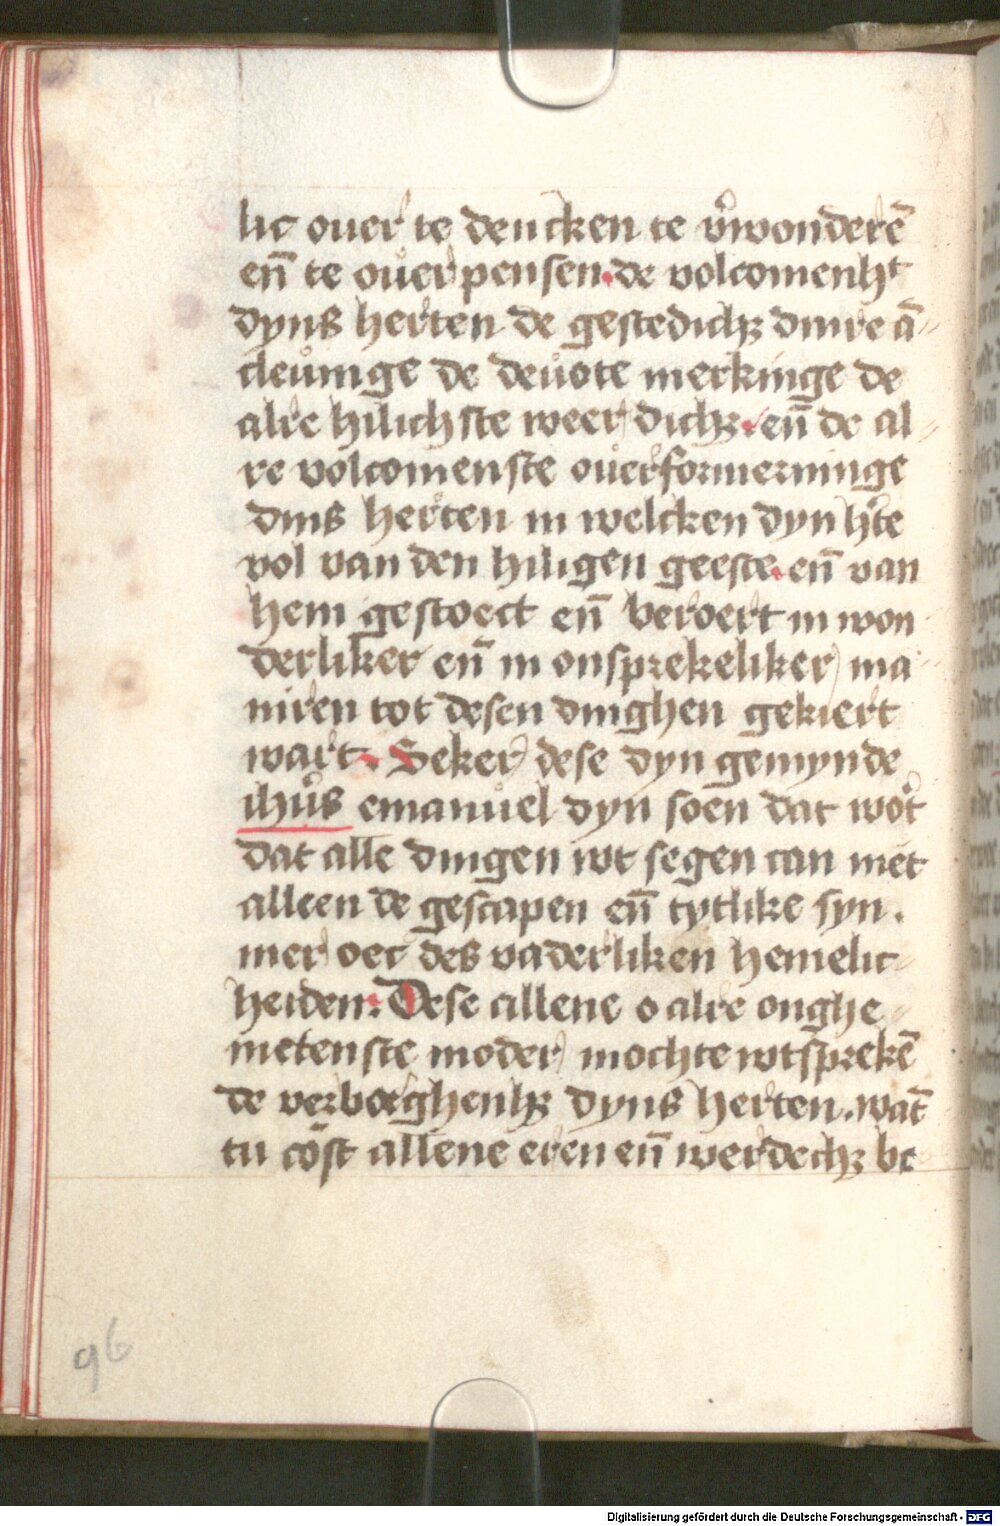 lic ouer te dencken te v̾wonderē
en̄ te ouerpensen. de volcomenh̾t
dyns herten de gestedichꝫ dinre ā-
cleuinge de deuote merkinge de
alre hilichste weerdichꝫ. en̄ de al-
re volcomenste ouerformerninge
dins herten in welcken dyn h̾te
vol van den hiligen geeste. en̄ van
hem gestoect en̄ beroert in won-
derliker en̄ in onsprekeliker ma-
niren tot desen dinghen gekiert
wart. Seker dese dyn gemynde
ihūs emanuel dyn soen dat wo̾t
dat alle dingen wt segen can niet
alleen de gescapen en̄ tytlike syn.
mer oec des vaderliken hemelic-
heiden. Dese allene o alre onghe-
metenste moder mochte wtsprekē
de verborghenhꝫ dyns herten. wāt
tu cōst allene eren en̄ werdechꝫ be
96
Digitalisierung gefördert durch die Deutsche Forschungsgemeinschaft - DFG